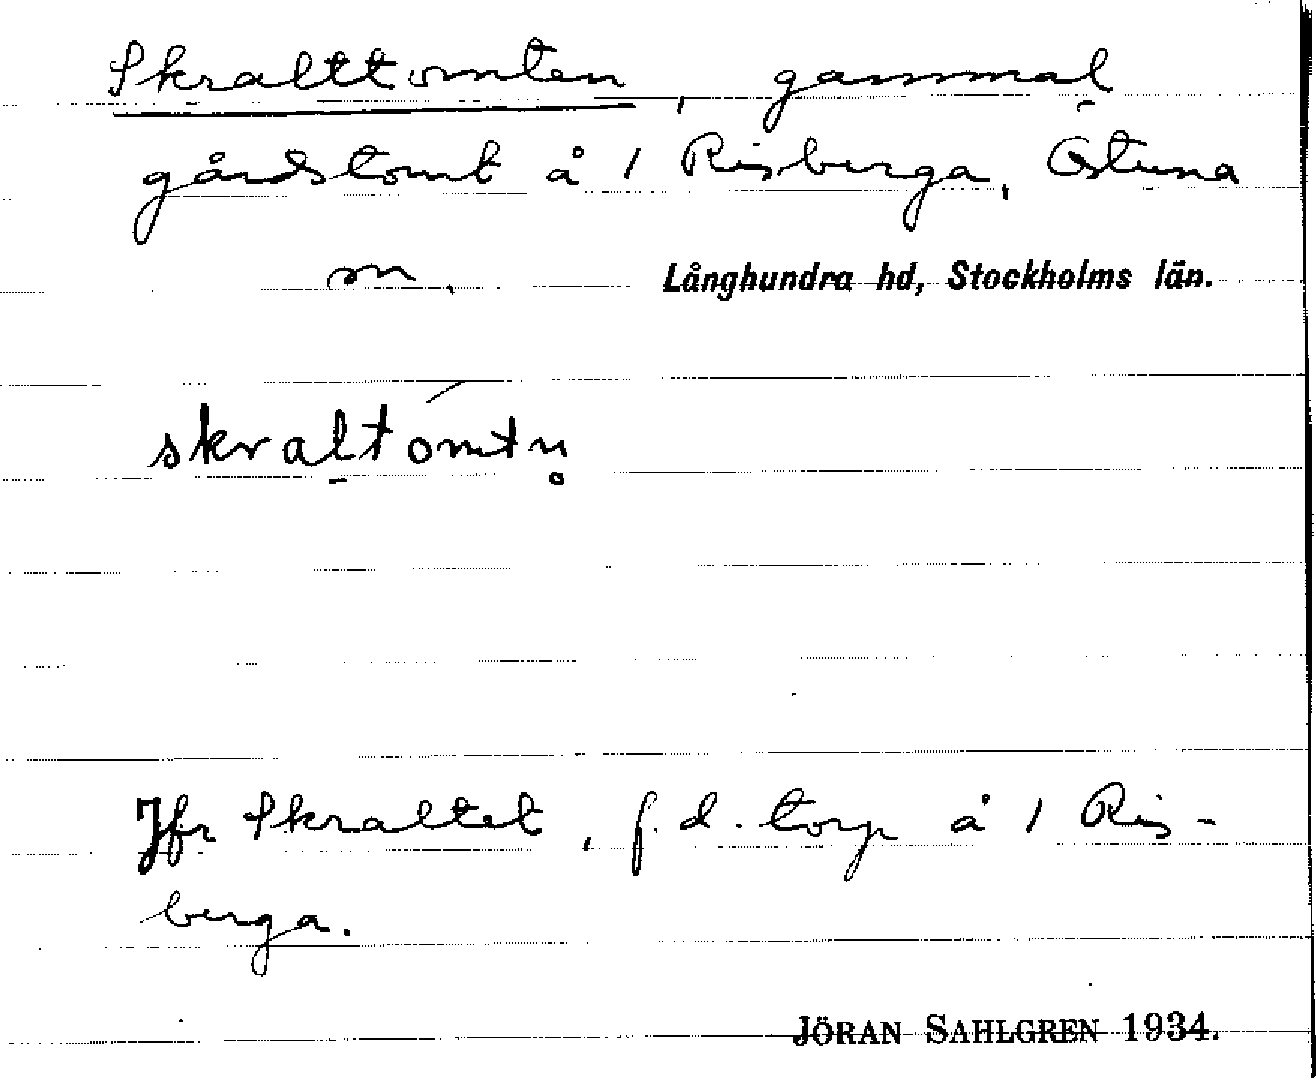 Skralttomten, gammal
gårdstomt å 1 Risberga, Östuna
sn. Långhundra hd, Stockholms län.
skra̠ltómtn̥
Jfr Skraltet, f.d. torp å 1 Ris-
berga.
JÖRAN SAHLGREN 1934.